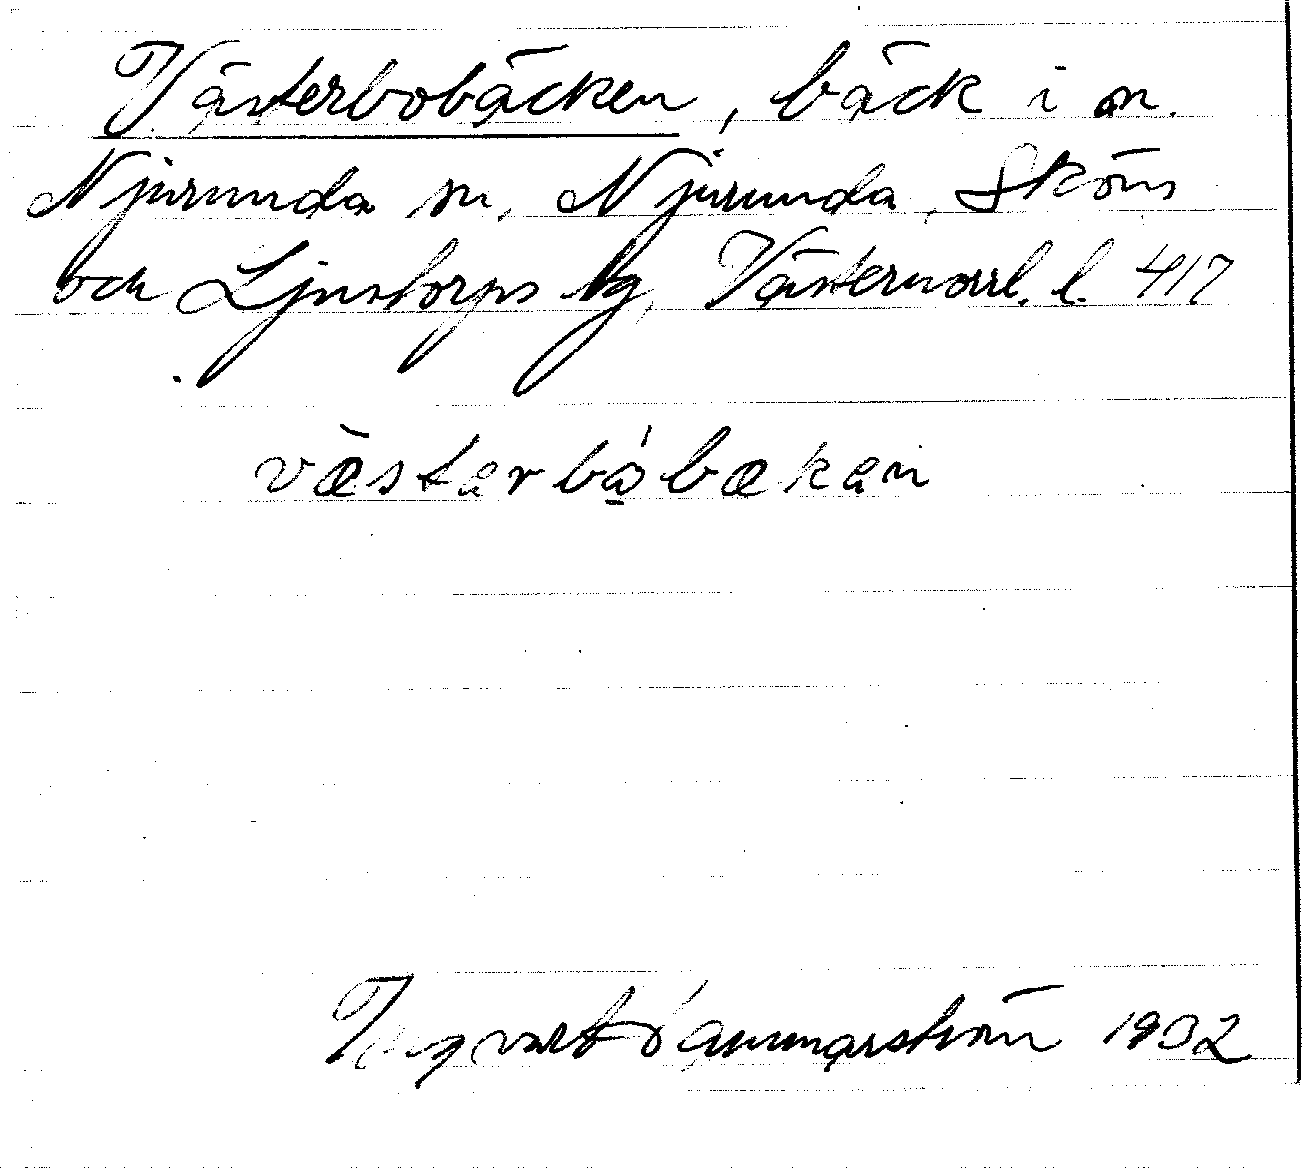 Västerbobäcken, bäck i n.
Njurunda sn, Njurunda, Sköns
och Ljustorps tg, Västernorrl. l. 417
væ̀stərbǻbækən
Ingvart 1932